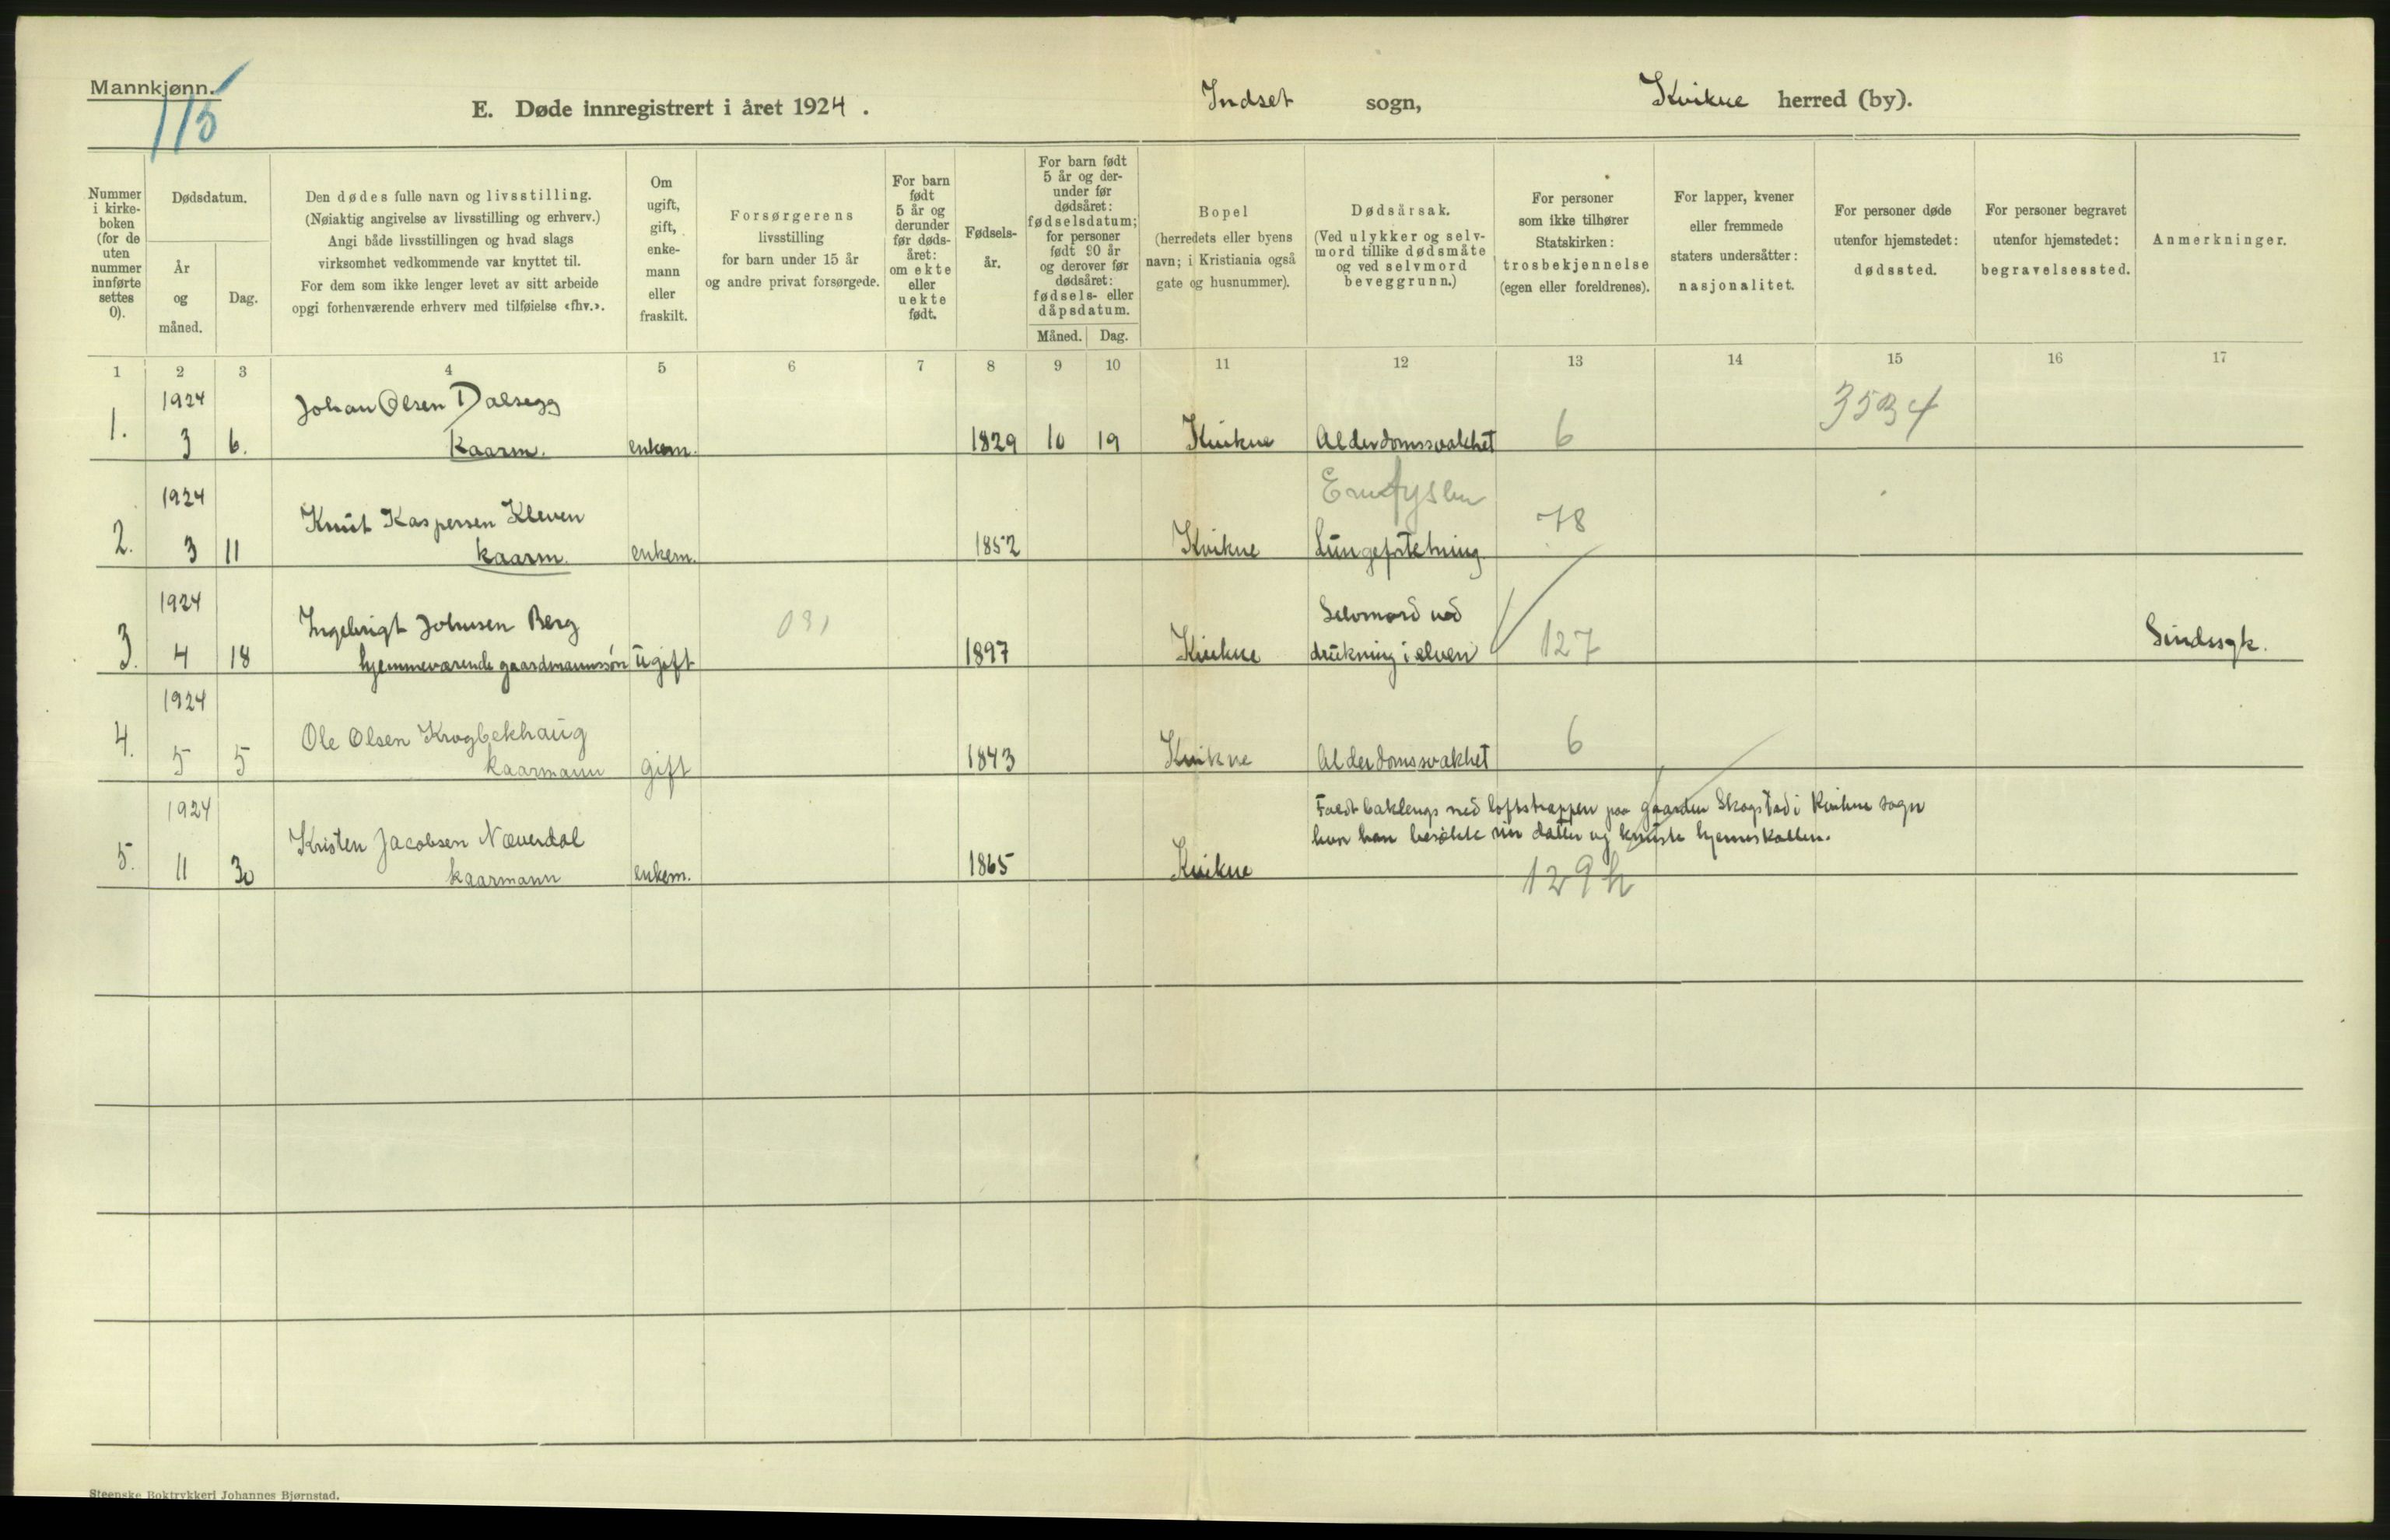 Mannkjønn.
115
E. Døde innregistrert i året 1924.
Indset sogn,
Kvikne herred (by).
Nummer i kirke-boken (for de uten nummer innførte settes 0).
Dødsdatum.
År og måned.
Dag.
Den dødes fulle navn og livsstilling.
(Nøiaktig angivelse av livsstilling og erhverv.)
Angi både livsstillingen og hvad slags
virksomhet vedkommende var knyttet til.
For dem som ikke lenger levet av sitt arbeide
opgi forhenværende erhverv med tilføielse «fhv.».
Om ugift, gift, enke-mann eller fraskilt.
Forsørgerens
livsstilling
for barn under 15 år
og andre privat forsørgede.
For barn født 5 år og derunder før døds-året: om ekte eller uekte født.
Fødsels-år.
For barn født 5 år og der-under før dødsåret: fødselsdatum; for personer født 90 år og derover før dødsåret: fødsels- eller dåpsdatum.
Måned. Dag.
Bopel
(herredets eller byens
navn; i Kristiania også
gate og husnummer).
Dødsårsak.
(Ved ulykker og selv-
mord tillike dødsmåte
og ved selvmord
beveggrunn.)
For personer
som ikke tilhører
Statskirken:
trosbekjennelse
(egen eller foreldrenes).
For lapper, kvener
eller fremmede
staters undersåtter:
nasjonalitet.
For personer døde
utenfor hjemstedet:
dødssted.
For personer begravet
utenfor hjemstedet:
begravelsessted.
Anmerkninger.
1 2 3 4 5 6 7 8 9 10 11 12 13 14 15 16 17
1924 Johan Olsen Dalsegg 3534
1. 3 6. kaarm. enkem. 1829 10 19 Kvikne Alderdomssvakhet 6
1924 Knut Kaspersen Kleven Emfysem
2. 3 11 kaarm. enkem. 1852 Kvikne Lungefortetning 78
1924 Ingebrigt Johnsen Berg 031 Selvmord ved
3. 4 18 hjemmeværende gaardmannssøn ugift 1897 Kvikne drukning i elven 127 Sindssyk.
1924 Ole Olsen Krogbekhaug
4. 5 5 kaarmann gift 1843 Kvikne Alderdomssvakhet 6
1924 Kristen Jacobsen Næverdal Faldt baklengs ned loftstrappen paa gaarden Skogstad i Kvikne sogn
hvor han besøkte sin datter og knuste hjerneskallen.
5. 11 30 kaarmann enkem. 1865 Kvikne 129 h
Steenske Boktrykkeri Johannes Bjørnstad.